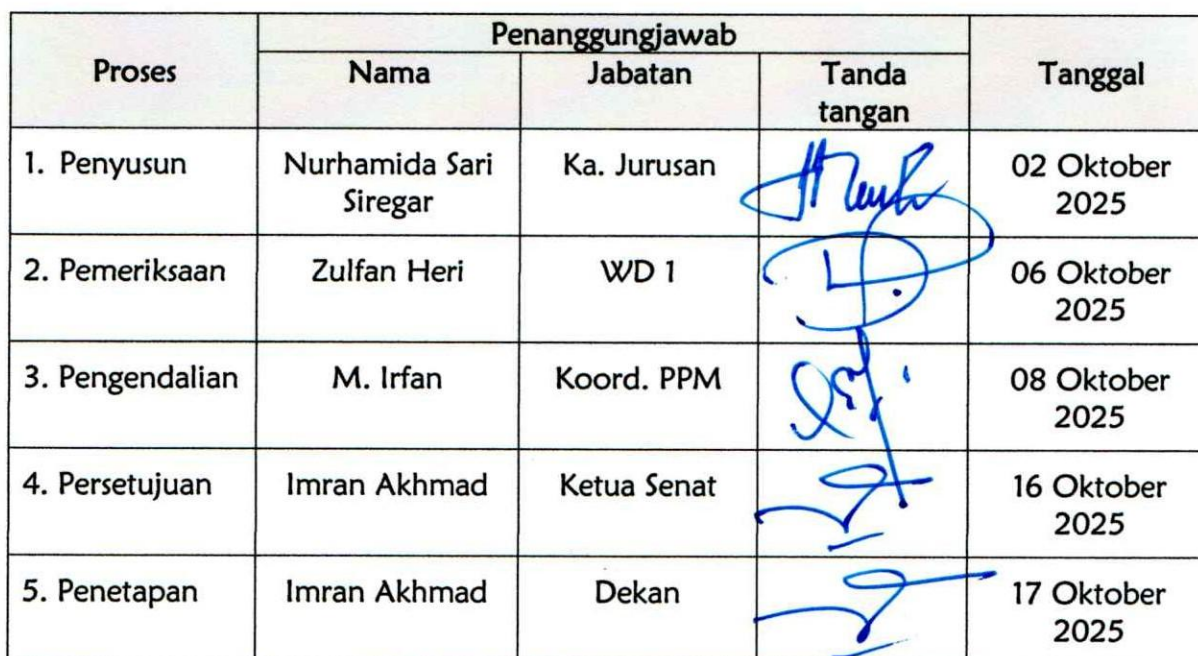 Proses
Penanggungjawab
Nama
Jabatan
Tanda
tangan
Tanggal
1. Penyusun
Nurhamida Sari
Siregar
Ka. Jurusan
02 Oktober
2025
2. Pemeriksaan
Zulfan Heri
WD 1
06 Oktober
2025
3. Pengendalian
M. Irfan
Koord. PPM
08 Oktober
2025
4. Persetujuan
Imran Akhmad
Ketua Senat
16 Oktober
2025
5. Penetapan
Imran Akhmad
Dekan
17 Oktober
2025